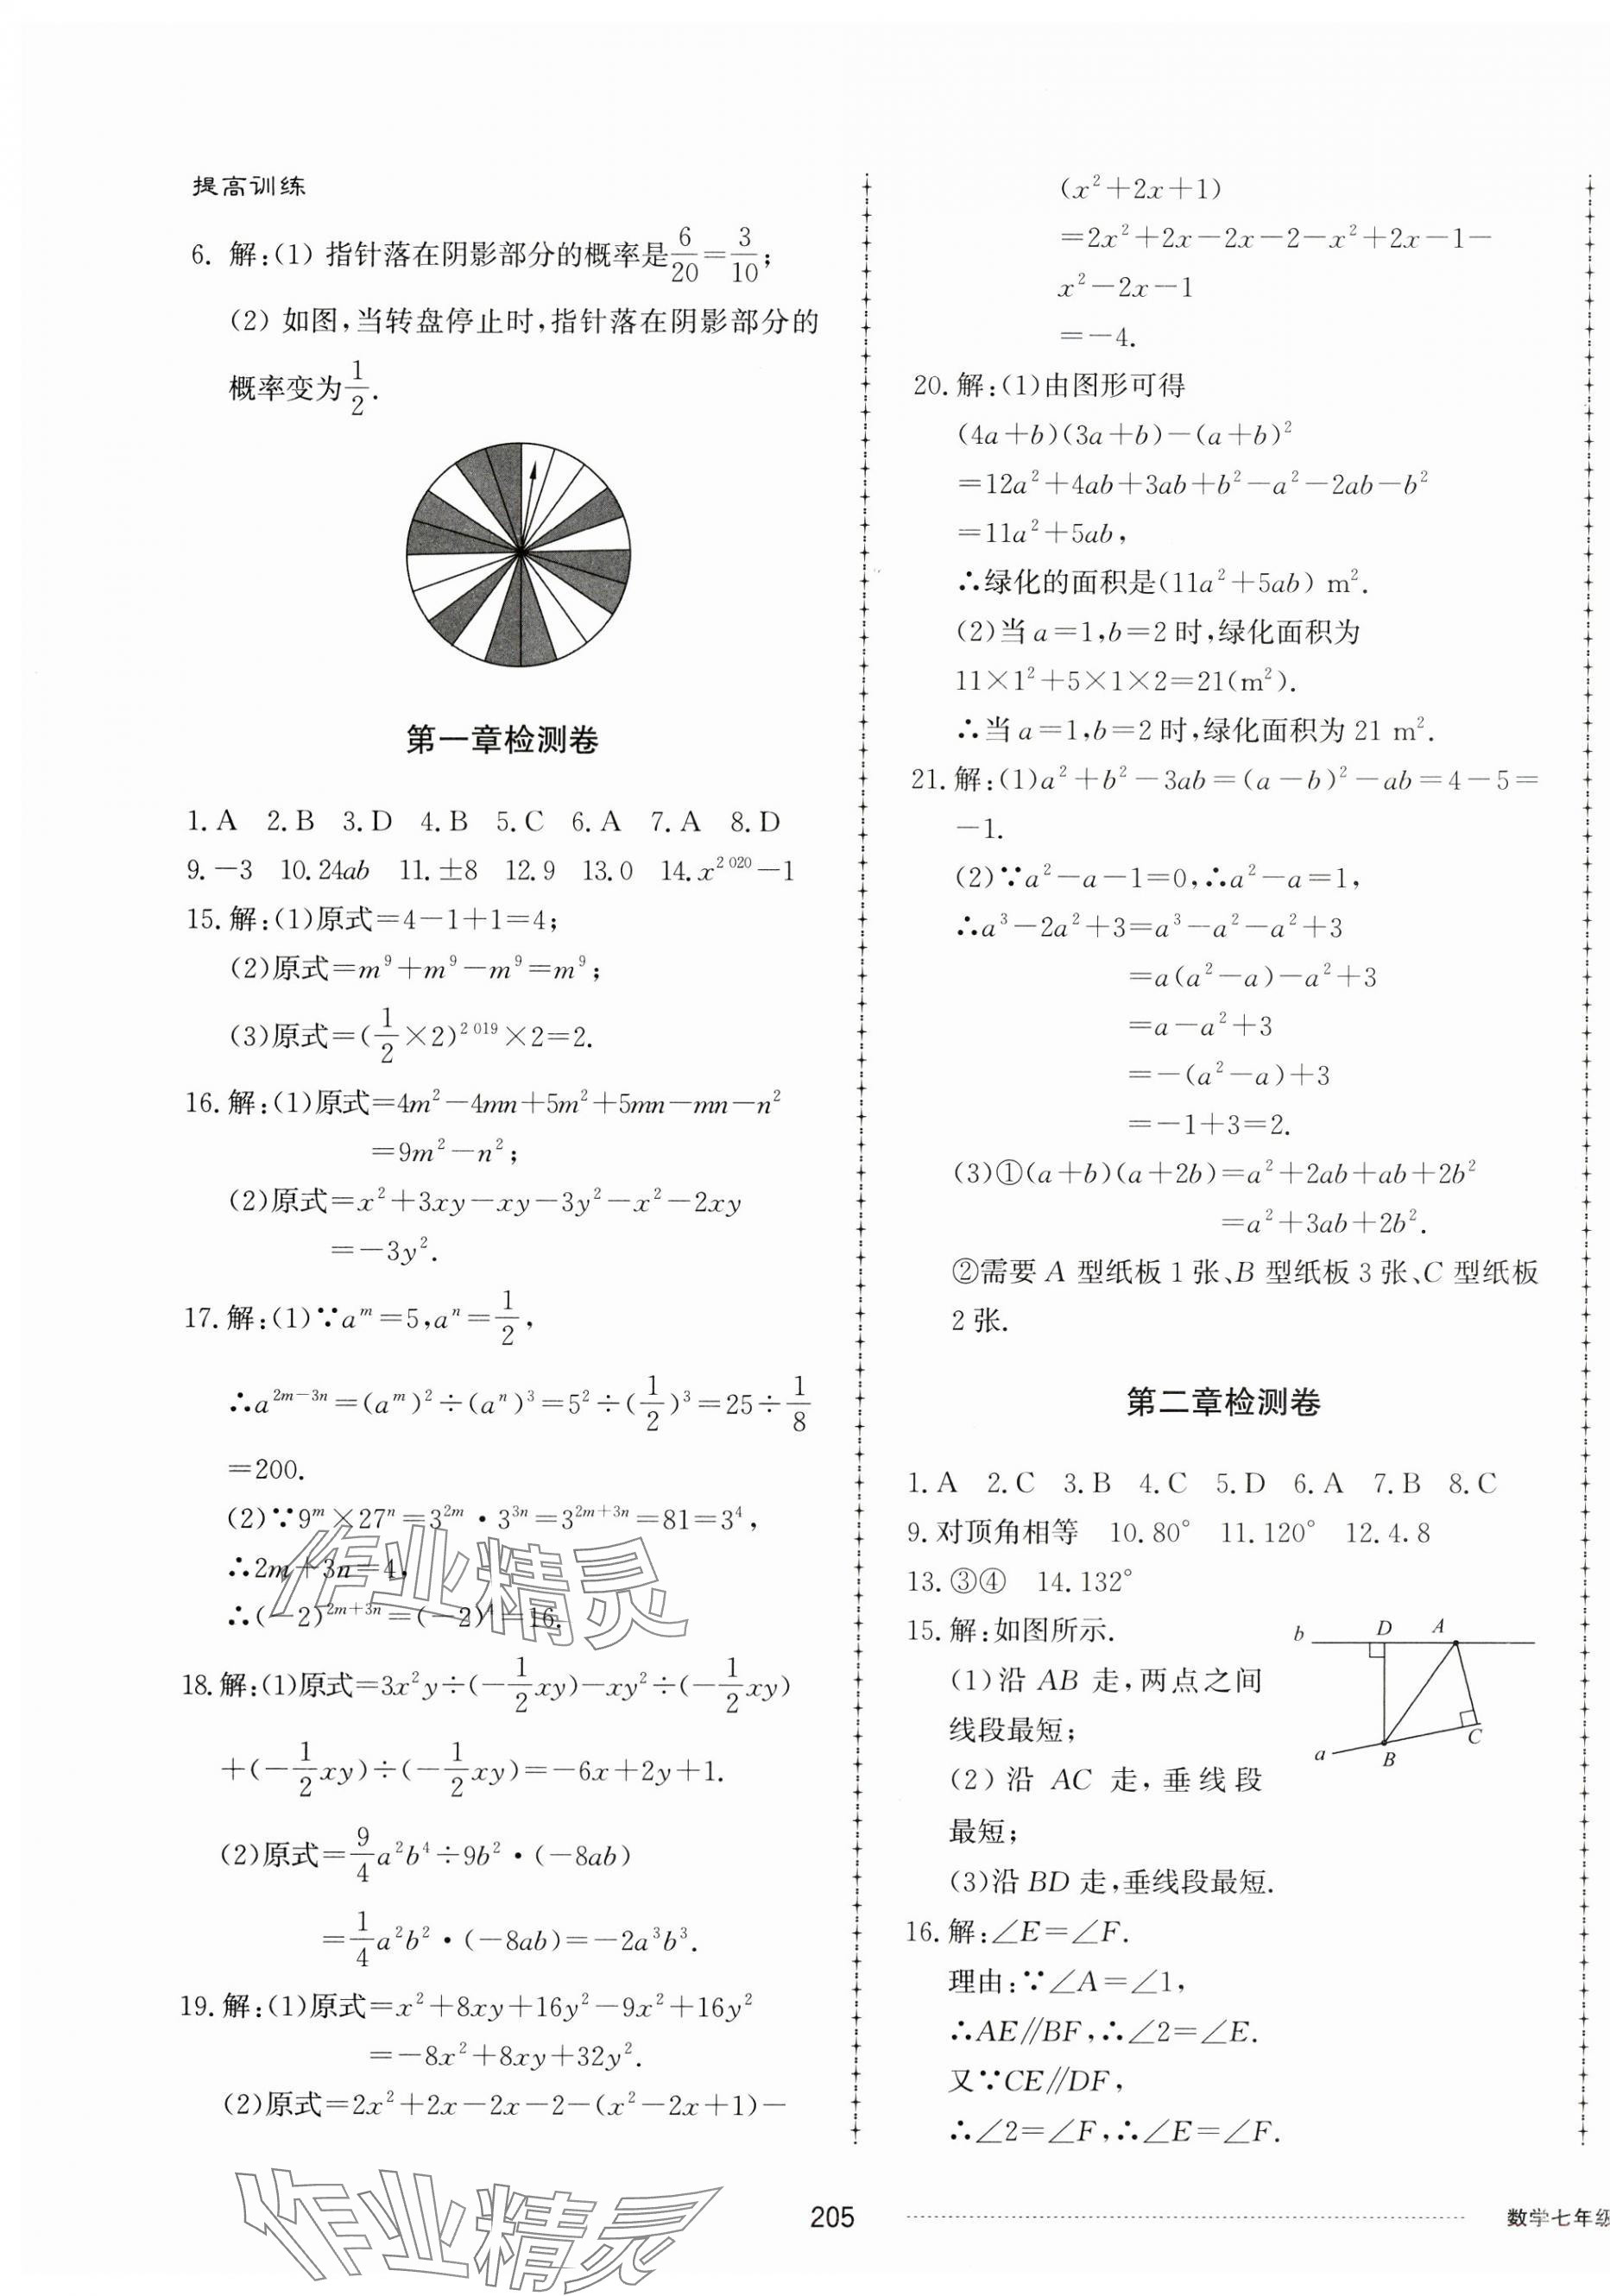 提高训练
6. 解:(1) 指针落在阴影部分的概率是6/20=3/10;
(2) 如图,当转盘停止时,指针落在阴影部分的
概率变为1/2.
第一章检测卷
1. A 2. B 3. D 4. B 5. C 6. A 7. A 8. D
9. −3 10. 24ab 11. ±8 12. 9 13. 0 14. x^{2 020}−1
15. 解:(1)原式=4−1+1=4;
(2)原式=m⁹+m⁹−m⁹=m⁹;
(3)原式=(1/2×2)^{2 019}×2=2.
16. 解:(1)原式=4m²−4mn+5m²+5mn−mn−n²
=9m²−n²;
(2)原式=x²+3xy−xy−3y²−x²−2xy
=−3y².
17. 解:(1)∵a^m=5,a^n=1/2,
∴a^{2m−3n}=(a^m)²÷(a^n)³=5²÷(1/2)³=25÷1/8
=200.
(2)∵9^m×27^n=3^{2m}·3^{3n}=3^{2m+3n}=81=3⁴,
∴2m+3n=4,
∴(−2)^{2m+3n}=(−2)⁴=16.
18. 解:(1)原式=3x²y÷(−1/2xy)−xy²÷(−1/2xy)
+(−1/2xy)÷(−1/2xy)=−6x+2y+1.
(2)原式=9/4a²b⁴÷9b²·(−8ab)
=1/4a²b²·(−8ab)=−2a³b³.
19. 解:(1)原式=x²+8xy+16y²−9x²+16y²
=−8x²+8xy+32y².
(2)原式=2x²+2x−2x−2−(x²−2x+1)−
(x²+2x+1)
=2x²+2x−2x−2−x²+2x−1−
x²−2x−1
=−4.
20. 解:(1)由图形可得
(4a+b)(3a+b)−(a+b)²
=12a²+4ab+3ab+b²−a²−2ab−b²
=11a²+5ab,
∴绿化的面积是(11a²+5ab) m².
(2)当a=1,b=2时,绿化面积为
11×1²+5×1×2=21(m²).
∴当a=1,b=2时,绿化面积为21 m².
21. 解:(1)a²+b²−3ab=(a−b)²−ab=4−5=
−1.
(2)∵a²−a−1=0,∴a²−a=1,
∴a³−2a²+3=a³−a²−a²+3
=a(a²−a)−a²+3
=a−a²+3
=−(a²−a)+3
=−1+3=2.
(3)①(a+b)(a+2b)=a²+2ab+ab+2b²
=a²+3ab+2b².
②需要A型纸板1张、B型纸板3张、C型纸板
2张.
第二章检测卷
1. A 2. C 3. B 4. C 5. D 6. A 7. B 8. C
9. 对顶角相等 10. 80° 11. 120° 12. 4.8
13. ③④ 14. 132°
15. 解:如图所示.
(1)沿AB走,两点之间
线段最短;
(2)沿AC走,垂线段
最短;
(3)沿BD走,垂线段最短.
b D A
C
a B
16. 解:∠E=∠F.
理由:∵∠A=∠1,
∴AE∥BF,∴∠2=∠E.
又∵CE∥DF,
∴∠2=∠F,∴∠E=∠F.
作业精灵
作业精灵
205
数学七年级